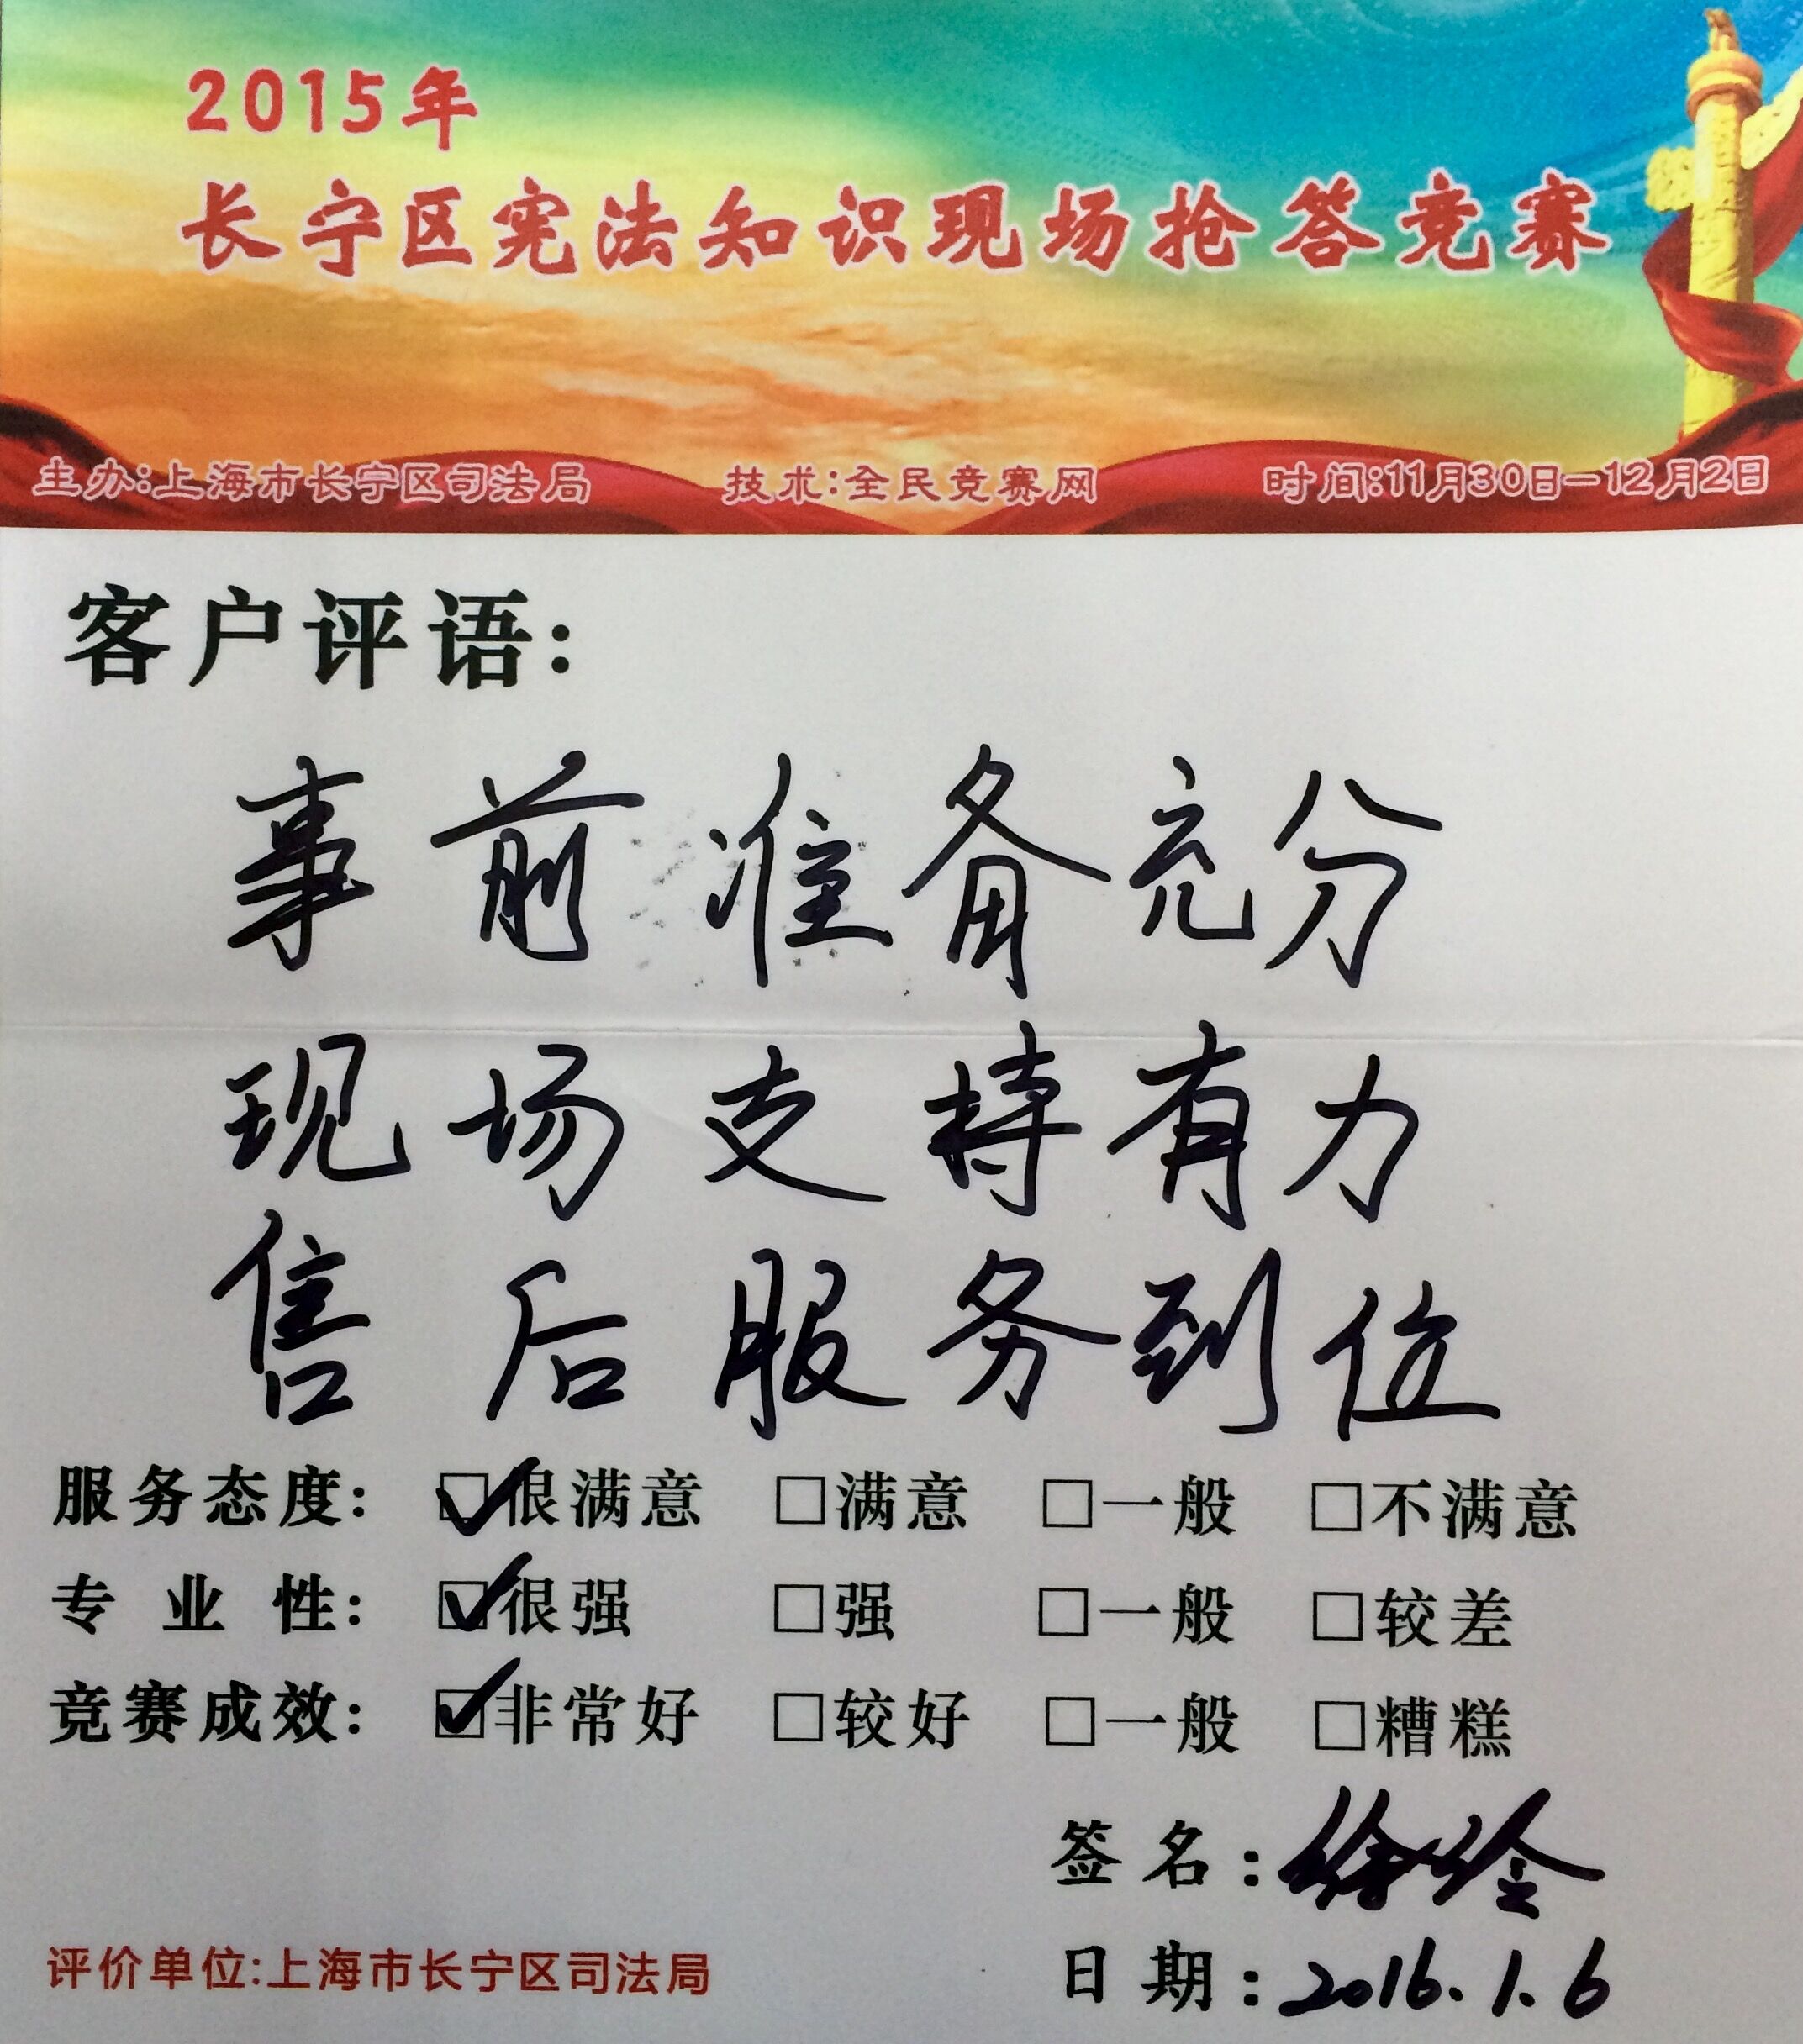 2015年
长宁区宪法知识现场抢答竞赛
主办:上海市长宁区司法局 技术:全民竞赛网 时间:11月30日—12月2日
客户评语:
事前准备充分
现场支持有力
售后服务到位
服务态度: ☑很满意 □满意 □一般 □不满意
专业性: ☑很强 □强 □一般 □较差
竞赛成效: ☑非常好 □较好 □一般 □糟糕
签名:徐
日期:2016.1.6
评价单位:上海市长宁区司法局